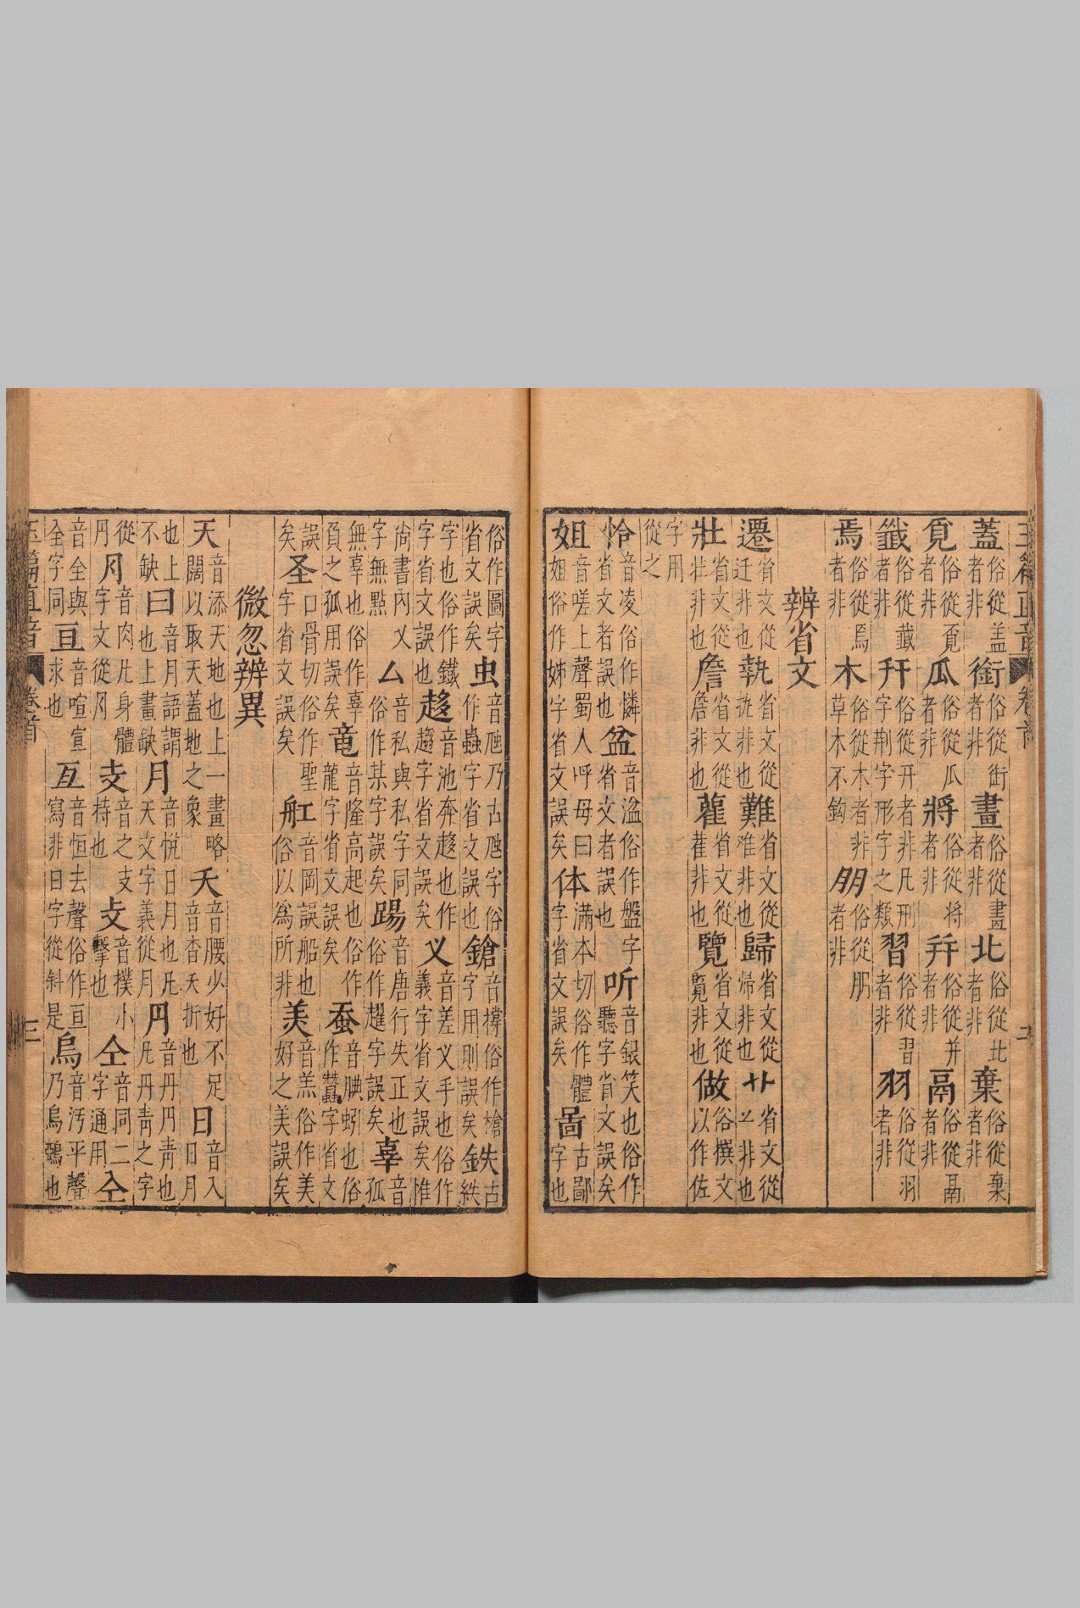 蓋俗從盖者非 銜俗從街者非 畫俗從畫者非 北俗從北者非 棄俗從棄者非
覓俗從覔者非 瓜俗從瓜者非 將俗從将者非 幷俗從并者非 鬲俗從鬲者非
籤俗從籖者非 幵俗從开者非凡刑字荆字形字之類 習俗從習者非 羽俗從羽者非
焉俗從焉者非 木俗從木者非草木不鈎 朋俗從朋者非
辨省文
遷省文從迁非也 執省文從执非也 難省文從难非也 歸省文從帰非也 廿省文從非也
壯省文從壮非也 詹省文從詹非也 藿省文從萑非也 覽省文從覧非也 做俗撰文以作佐
字用從之
怜音凌俗作憐省文者誤也 盆音湓俗作盤字省文者誤也 听音銀笑也俗作聽字省文誤矣
姐音嗟上聲蜀人呼母曰姐俗作姊字省文誤矣 体滿本切俗作體字省文誤矣 啚古鄙字也
俗作圖字省文誤矣 虫音虺乃古虺字俗作蟲字省文誤也 鎗音撐俗作槍字用則誤矣 鉄古紩
字也俗作鐵字省文誤也 趍音池奔趍也作趨字省文誤矣 义音差义手也俗作義字省文誤矣惟
尙書內义字無點 厶音私與私字同俗作某字誤矣 踼音唐行失正也俗作趯字誤矣 辜音孤
無辜也俗作辠負之孤用誤矣 竜音隆高起也俗作龍字省文誤矣 蚕音腆蚓也俗作蠶字省文
誤矣 圣口骨切俗作聖字省文誤矣 舡音岡誤船也俗以爲所非 羙音羔俗作美好之美誤矣
微忽辨異
天音添天地也上一畫略闊以取天蓋地之象 夭音腰少好不足音杳夭折也 日音入日月
也上不缺 曰音月語謂也上畫缺 月音悅日月也凡天文字義從月 丹音丹丹靑也凡丹靑之字
從丹 月音肉凡身體字文從月 支音之支持也 攴音撲小擊也 仝音同二字通用 仝
音全與全字同 亘音喧宣求也 亙音恒去聲俗作亘寫非日字從斜是 烏音汚平聲乃烏鴉也
卷首
三